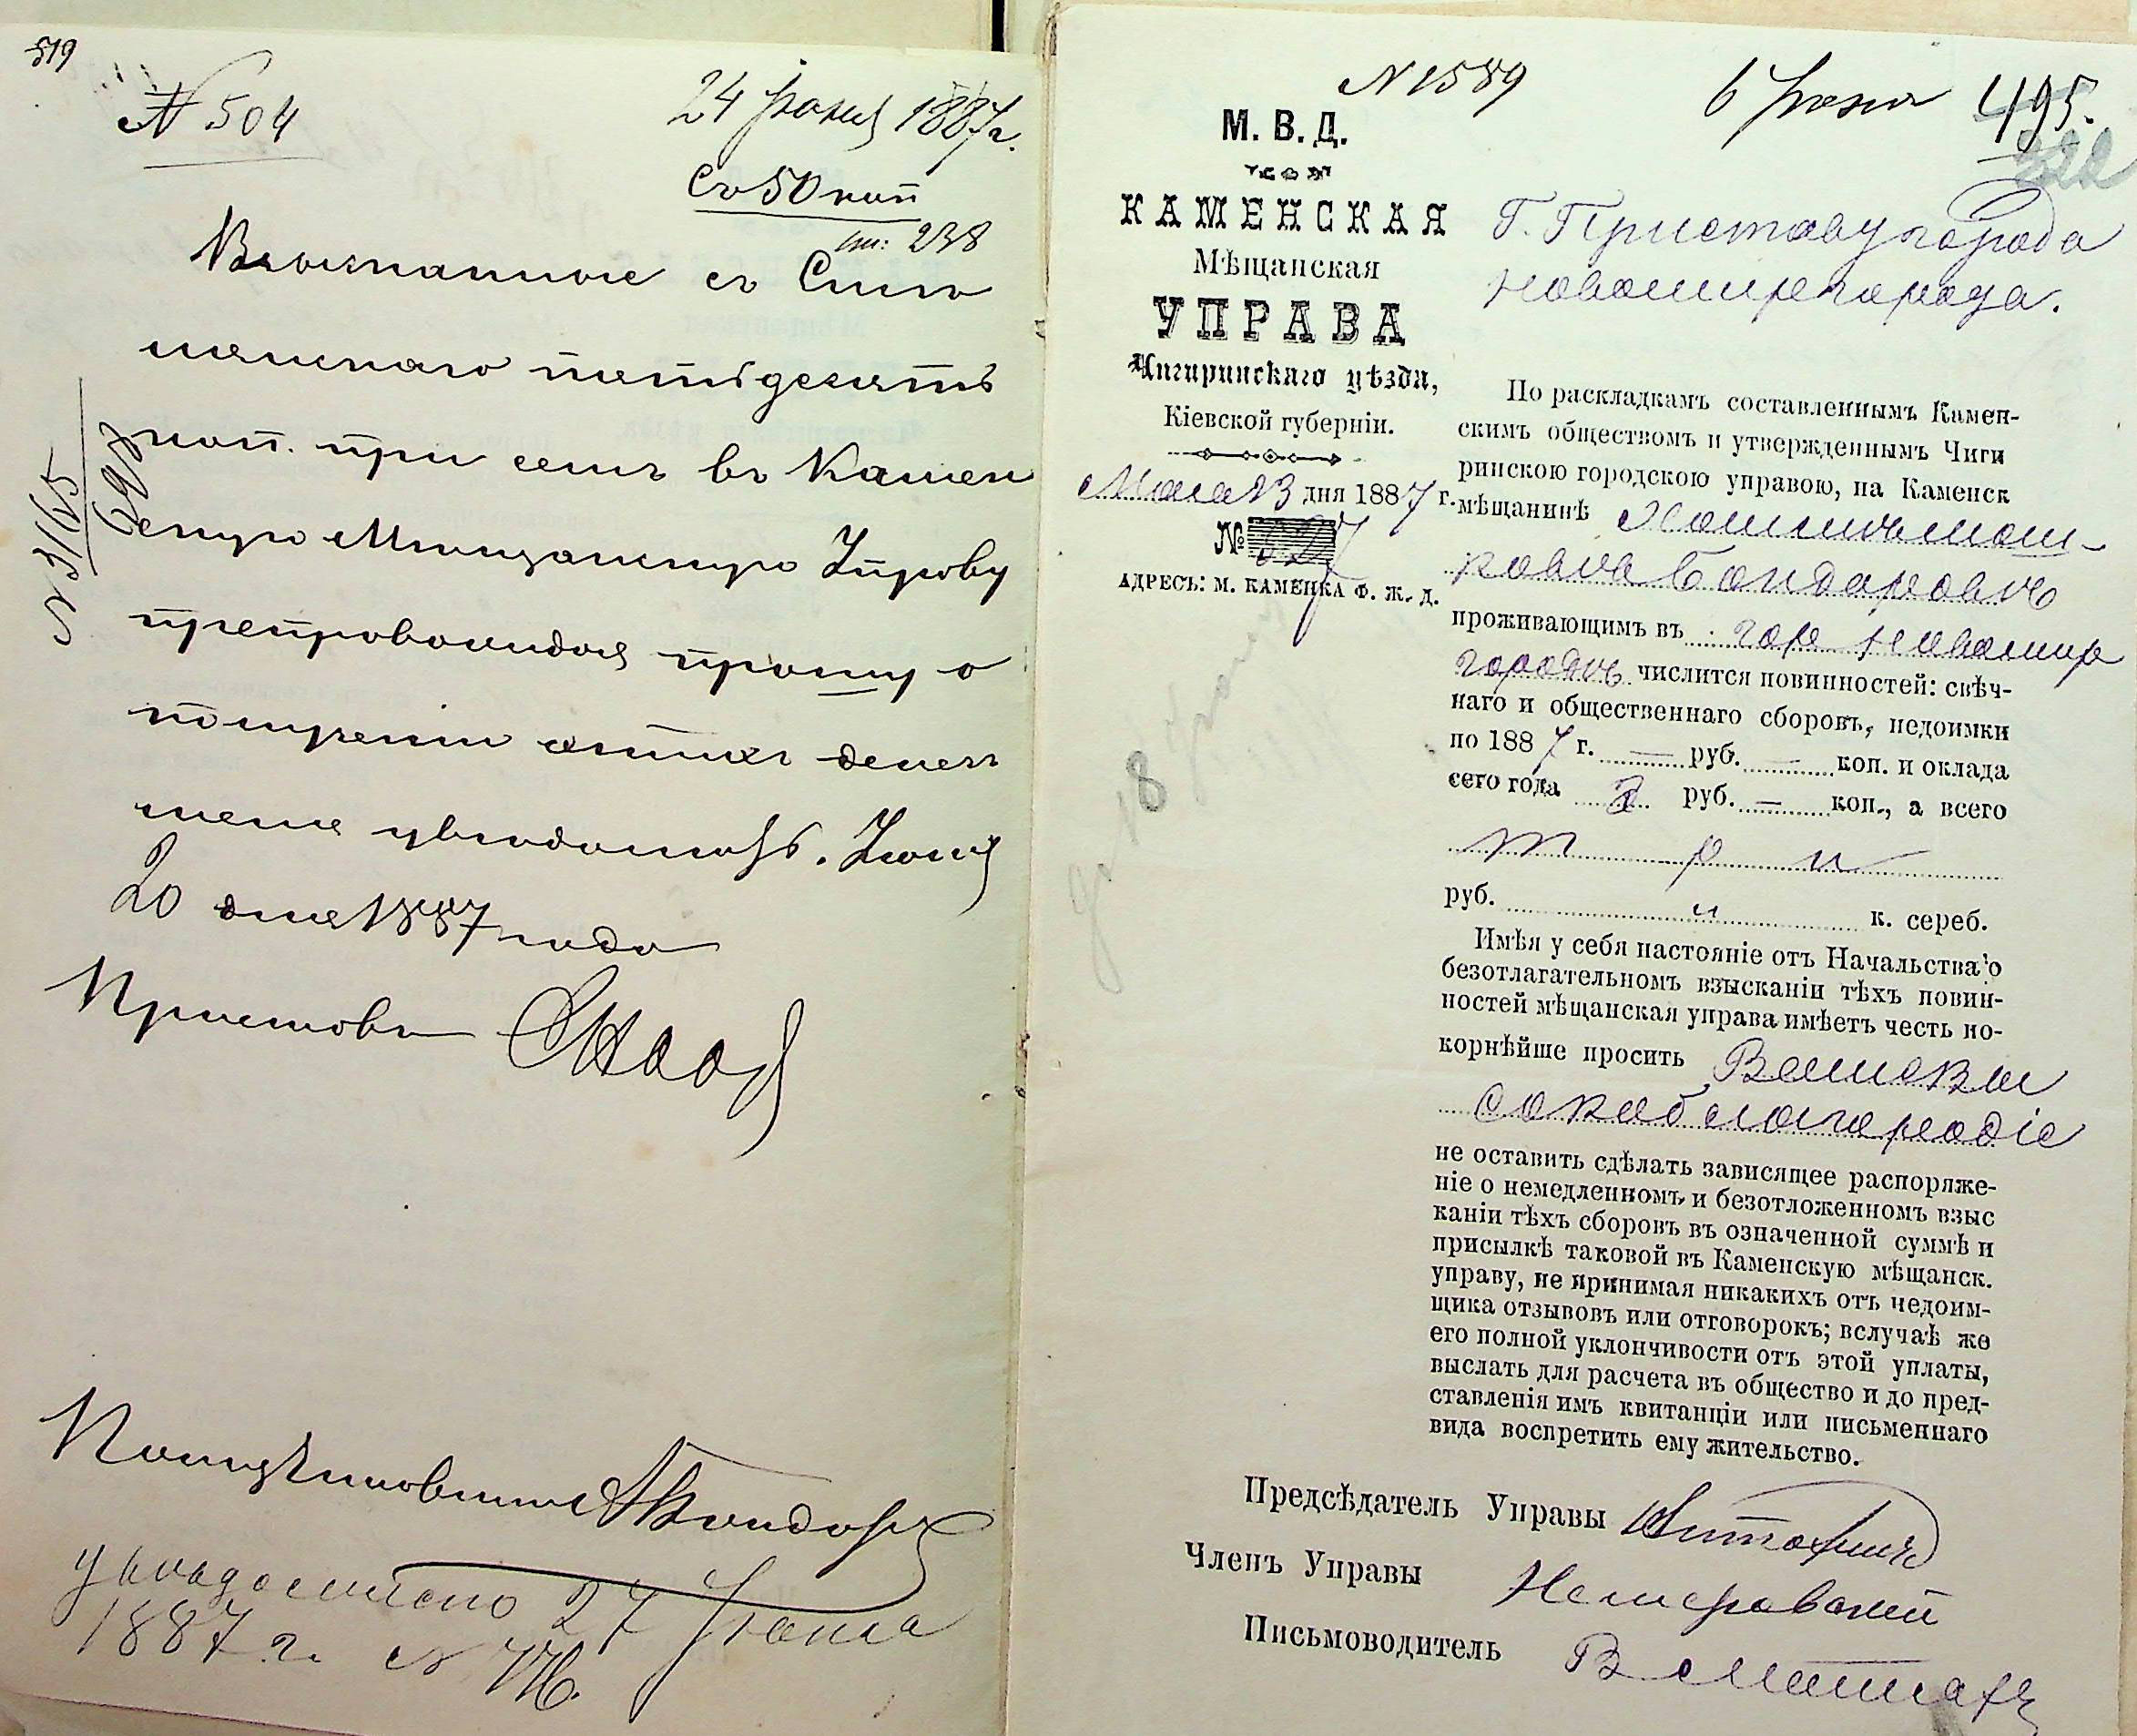 519
№ 504
24 Іюня 1887 г.
Съ 50 коп
ст: 238
Взысканные съ
пятьдесятъ
коп. при семъ въ Камен
скую Мѣщанскую Управу
препровождая прошу о
полученіи этихъ денегъ
меня увѣдомить. Іюня
20 дня 1887 года
Приставъ
№ 31/65
увѣдомлено 27 Іюня
1887 г. №
№ 1589
6 Іюня 495.
322
М. В. Д.
КАМЕНСКАЯ
Мѣщанская
УПРАВА
Чигиринскаго уѣзда,
Кіевской губерніи.
Мая 23 дня 1887 г.
№ 327
АДРЕСЪ: М. КАМЕНКА Ф. Ж. Д.
Г. Приставу города
Новомиргорода.
По раскладкамъ составленнымъ Камен-
скимъ обществомъ и утвержденнымъ Чиги
ринскою городскою управою, на Каменск
мѣщанинѣ
проживающимъ въ гор Новомир
городѣ числится повинностей: свѣч-
наго и общественнаго сборовъ, недоимки
по 1887 г. — руб. — коп. и оклада
сего года 3 руб. — коп., а всего
три
руб. и к. сереб.
Имѣя у себя настояніе отъ Начальства о
безотлагательномъ взысканіи тѣхъ повин-
ностей мѣщанская управа имѣетъ честь по-
корнѣйше просить Ваше Вы
сокоблагородіе
не оставить сдѣлать зависящее распоряже-
ніе о немедленномъ и безотложенномъ взыс
каніи тѣхъ сборовъ въ означенной суммѣ и
присылкѣ таковой въ Каменскую мѣщанск.
управу, не принимая никакихъ отъ недоим-
щика отзывовъ или отговорокъ; вслучаѣ же
его полной уклончивости отъ этой уплаты,
выслать для расчета въ общество и до пред-
ставленія имъ квитанціи или письменнаго
вида воспретить ему жительство.
Предсѣдатель Управы
Членъ Управы
Письмоводитель